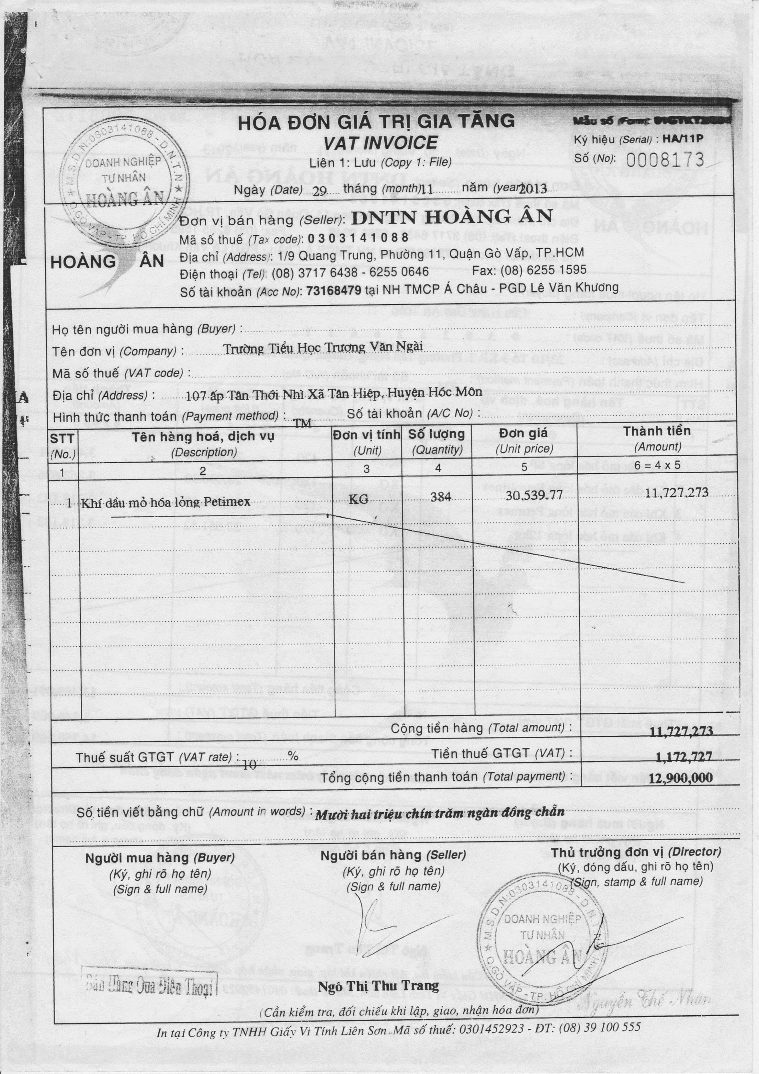 HÓA ĐƠN GIÁ TRỊ GIA TĂNG
VAT INVOICE
Liên 1: Lưu (Copy 1: File)
Ngày (Date) 29 tháng (month) 11 năm (year) 2013
Mẫu số (Form:
Ký hiệu (Serial) : HA/11P
Số (No): 0008173
M.S.D.N:0303141088-D.N.T.N
DOANH NGHIỆP
TƯ NHÂN
HOÀNG ÂN
Q.GÒ VẤP-TP. HỒ CHÍ MINH
HOÀNG ÂN
Đơn vị bán hàng (Seller): DNTN HOÀNG ÂN
Mã số thuế (Tax code): 0 3 0 3 1 4 1 0 8 8
Địa chỉ (Address): 1/9 Quang Trung, Phường 11, Quận Gò Vấp, TP.HCM
Điện thoại (Tel): (08) 3717 6438 - 6255 0646 Fax: (08) 6255 1595
Số tài khoản (Acc No): 73168479 tại NH TMCP Á Châu - PGD Lê Văn Khương
Họ tên người mua hàng (Buyer) :
Tên đơn vị (Company) : Trường Tiểu Học Trương Văn Ngài
Mã số thuế (VAT code) :
Địa chỉ (Address) : 107 ấp Tân Thới Nhì Xã Tân Hiệp, Huyện Hóc Môn
Hình thức thanh toán (Payment method) : TM Số tài khoản (A/C No) :
STT (No.) Tên hàng hoá, dịch vụ (Description) Đơn vị tính (Unit) Số lượng (Quantity) Đơn giá (Unit price) Thành tiền (Amount)
1 2 3 4 5 6 = 4 x 5
1 Khí dầu mỏ hóa lỏng Petimex KG 384 30,539.77 11,727,273
Cộng tiền hàng (Total amount) : 11,727,273
Thuế suất GTGT (VAT rate) : 10 % Tiền thuế GTGT (VAT) : 1,172,727
Tổng cộng tiền thanh toán (Total payment) : 12,900,000
Số tiền viết bằng chữ (Amount in words) : Mười hai triệu chín trăm ngàn đồng chẵn
Người mua hàng (Buyer) Người bán hàng (Seller) Thủ trưởng đơn vị (Director)
(Ký, ghi rõ họ tên) (Ký, ghi rõ họ tên) (Ký, đóng dấu, ghi rõ họ tên)
(Sign & full name) (Sign & full name) (Sign, stamp & full name)
M.S.D.N:0303141088-D.N.T
DOANH NGHIỆP
TƯ NHÂN
HOÀNG ÂN
Q.GÒ VẤP-TP. HỒ CHÍ MINH
Bán Hàng Qua Điện Thoại
Ngô Thị Thu Trang
Nguyễn Thế Nhân
(Cần kiểm tra, đối chiếu khi lập, giao, nhận hóa đơn)
In tại Công ty TNHH Giấy Vi Tính Liên Sơn - Mã số thuế: 0301452923 - ĐT: (08) 39 100 555